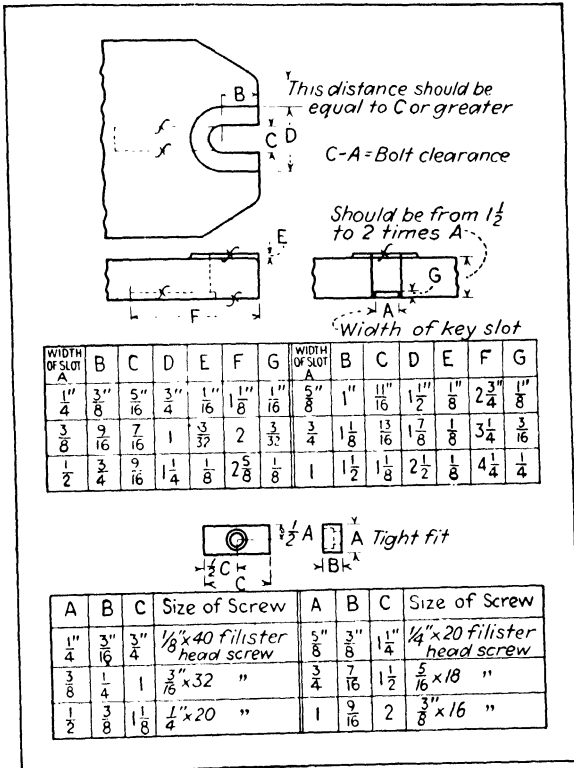 B
This distance should be
equal to C or greater
C
D
C-A = Bolt clearance
Should be from 1 1/2
to 2 times A
E
G
F
A
Width of key slot
WIDTH OF SLOT A B C D E F G WIDTH OF SLOT A B C D E F G
1/4" 3/8" 5/16" 3/4" 1/16" 1 1/8" 1/16" 5/8" 1" 11/16 1 1/2" 1/8" 2 3/4" 1/8"
3/8 9/16 7/16 1 3/32 2 3/32 3/4 1 1/8 13/16 1 7/8 1/8 3 1/4 3/16
1/2 3/4 9/16 1 1/4 1/8 2 5/8 1/8 1 1 1/2 1 1/8 2 1/2 1/8 4 1/4 1/4
1/2 A
A Tight fit
1/2 C
C
B
A B C Size of Screw A B C Size of Screw
1/4" 3/16" 3/4" 1/8" x 40 filister head screw 5/8" 3/8" 1 1/4" 1/4" x 20 filister head screw
3/8 1/4 1 3/16" x 32 " 3/4 7/16 1 1/2 5/16 x 18 "
1/2 3/8 1 1/8 1/4" x 20 " 1 9/16 2 3/8" x 16 "